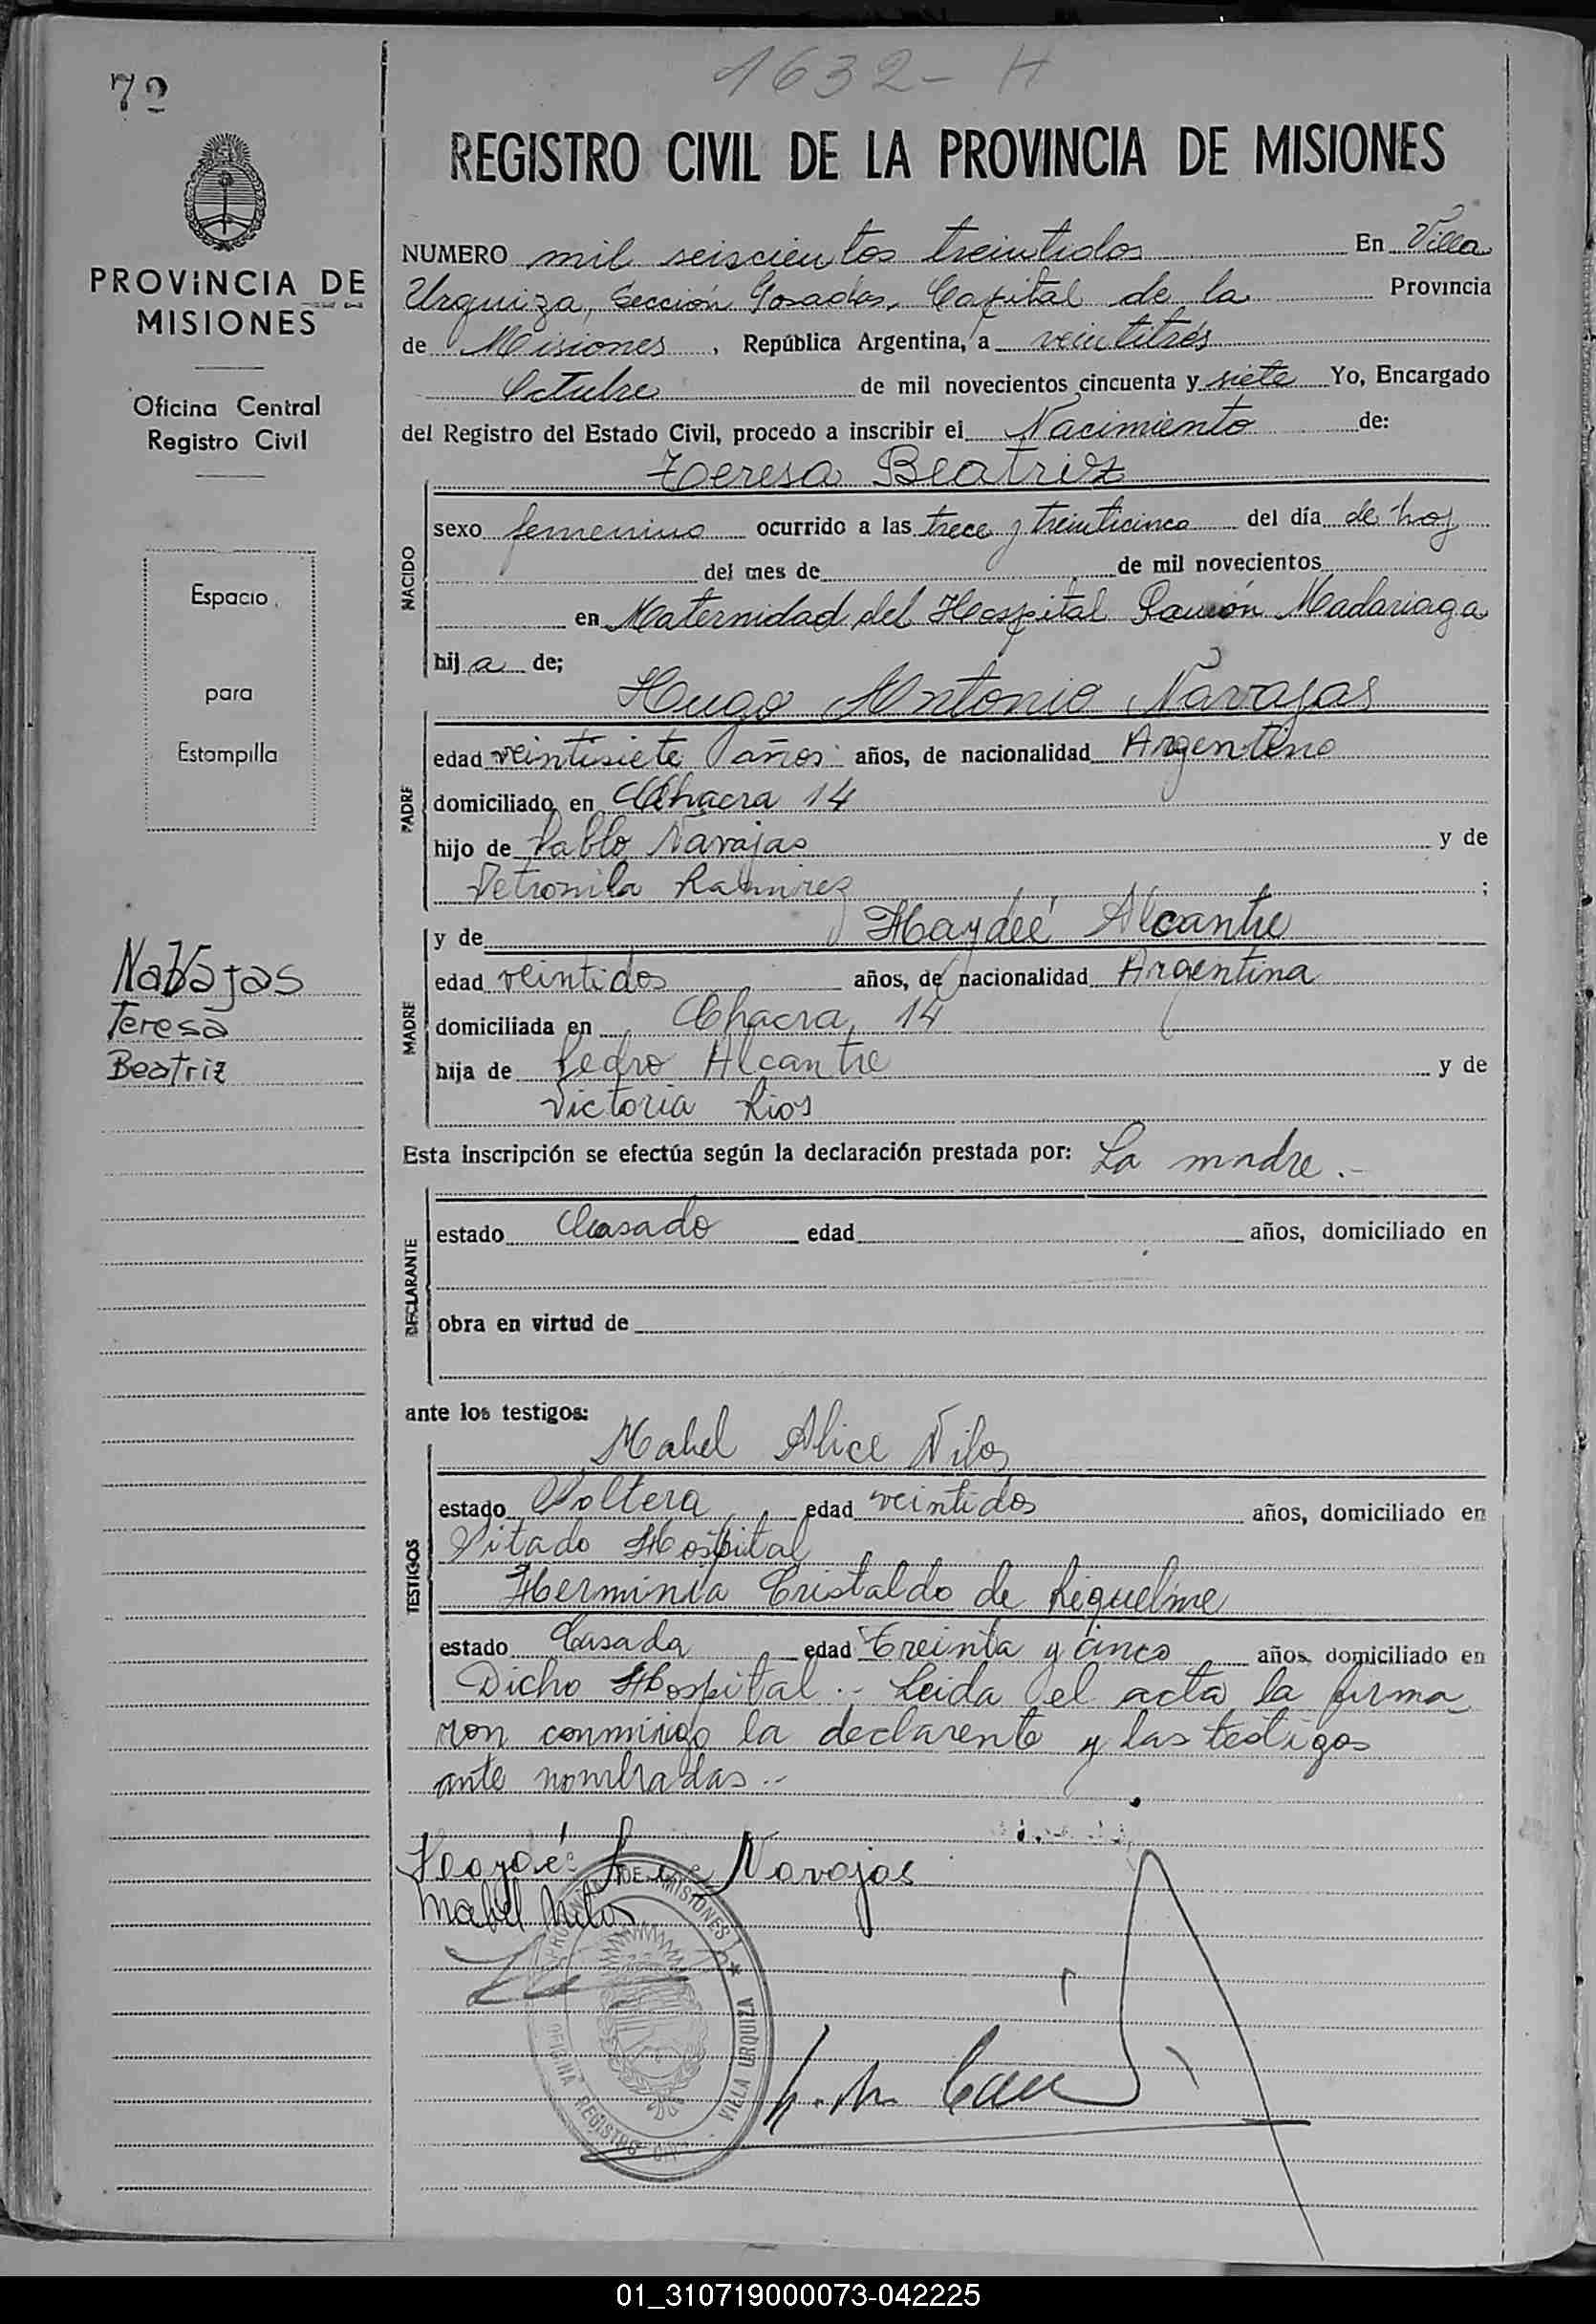 72
1632 - H
REGISTRO CIVIL DE LA PROVINCIA DE MISIONES
PROVINCIA DE
MISIONES
Oficina Central
Registro Civil
Espacio
para
Estampilla
Navajas
Teresa
Beatriz
NUMERO mil seiscientos treintidos En Villa
Urquiza, Sección Posadas, Capital de la Provincia
de Misiones, República Argentina, a veintitrés
Octubre de mil novecientos cincuenta y siete Yo, Encargado
del Registro del Estado Civil, procedo a inscribir el Nacimiento de:
Teresa Beatriz
NACIDO
sexo femenino ocurrido a las trece y treinticinco del día de hoy
del mes de de mil novecientos
en Maternidad del Hospital Ramón Madariaga
hij a de;
Hugo Antonio Navajas
PADRE
edad veintisiete años años, de nacionalidad Argentino
domiciliado en Chacra 14
hijo de Pablo Navajas y de
Petronila Ramirez ;
y de Haydeé Alcantre
MADRE
edad veintidos años, de nacionalidad Argentina
domiciliada en Chacra 14
hija de Pedro Alcantre y de
Victoria Rios
Esta inscripción se efectúa según la declaración prestada por: La madre.-
DECLARANTE
estado Casado edad años, domiciliado en
obra en virtud de
ante los testigos:
Mabel Alice Nilos
TESTIGOS
estado Soltera edad veintidos años, domiciliado en
Sitado Hospital
Herminia Cristaldo de Riquelme
estado Casada edad Treinta y cinco años, domiciliado en
Dicho Hospital.- Leida el acta la firma
ron conmingo la declarente y las testigos
ante nombradas.-
Haydé de Navajas
Mabel Nilos
PROVINCIA DE MISIONES * VILLA URQUIZA
OFICINA REGISTRO CIVIL
01_310719000073-042225